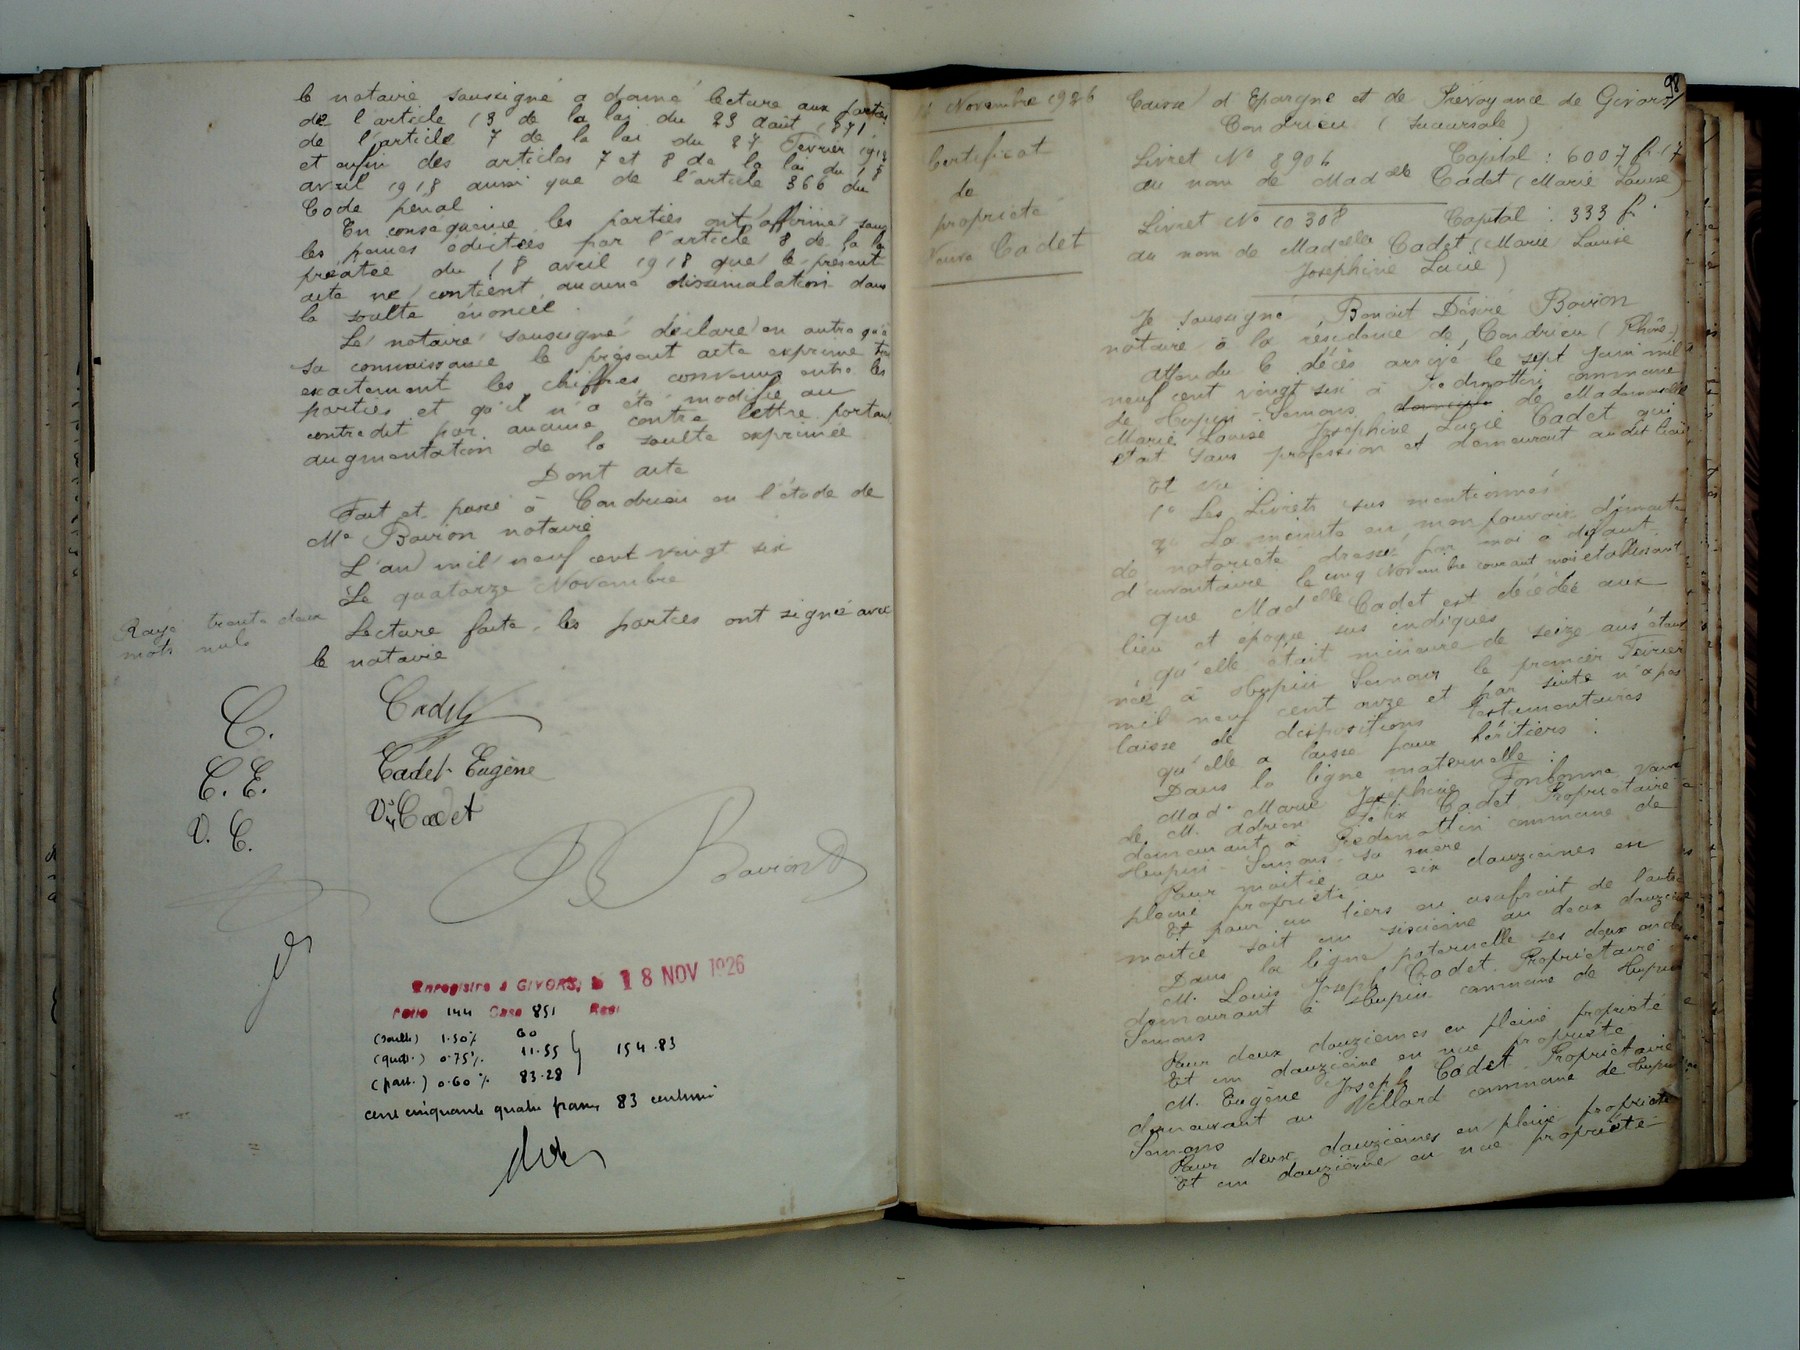 le notaire soussigné a donné lecture aux parties
de l'article 13 de la loi du 23 août 1871
de l'article 7 de la loi du 27 Février 1912
et enfin des articles 7 et 8 de la loi du 18
avril 1918 ainsi que de l'article 366 du
Code pénal
En conséquence les parties ont affirmé sous
les peines édictées par l'article 8 de la loi
précitée du 18 avril 1918 que le présent
acte ne contient aucune dissimulation dans
la soulte énoncée.
Le notaire soussigné déclare en outre qu'à
sa connaissance le présent acte exprime
exactement les chiffres convenus entre les
parties et qu'il n'a été modifié ou
contredit par aucune contre lettre portant
augmentation de la soulte exprimée
Dont acte
Fait et passé à Condrieu en l'étude de
Me Boiron notaire
L'an mil neuf cent vingt six
Le quatorze Novembre
Lecture faite, les parties ont signé avec
le notaire
Rayé trente deux
mots nuls
C.
C. E.
V. C.
Cadet
Cadet Eugène
Ve Cadet
B Boiron
Enregistré à GIVORS, le 18 NOV 1926
Folio 144 Case 851 Reçu
(soulte) 1.50% 60
(quot.) 0.75% 11.55 154.83
(part.) 0.60% 83.28
cent cinquante quatre francs 83 centimes
98
Novembre 1926
Certificat
de
propriété
Veuve Cadet
Caisse d'Epargne et de Prévoyance de Givors
Condrieu (Succursale)
Livret No 8906 Capital : 6007 f. 17
au nom de Madelle Cadet (Marie Louise)
Livret No 10308 Capital : 333 f.
au nom de Madelle Cadet (Marie Louise
Joséphine Lucie)
Je soussigné, Benoit Désiré Boiron
notaire à la résidence de Condrieu (Rhône)
Attendu le décès arrivé le sept Juin mil
neuf cent vingt six à commune
de Tupin-Semons, de Mademoiselle
Marie Louise Joséphine Lucie Cadet qui
était sans profession et demeurait audit lieu
Et vu :
1o Les Livrets sus mentionnés
2o La minute en mon pouvoir d'un acte
de notoriété dressé par moi à défaut
d'inventaire le cinq Novembre courant mois établissant
que Madelle Cadet est décédée aux
lieu et époque sus indiqués
qu'elle était mineure de seize ans étant
née à Tupin Semons le premier Février
mil neuf cent onze et par suite n'a pas
laissé de dispositions testamentaires
qu'elle a laissé pour héritiers :
Dans la ligne maternelle :
Made Marie Joséphine Fonbonne, veuve
de M. Adrien Félix Cadet Propriétaire
demeurant à commune de
Tupin-Semons, sa mère
Pour moitié ou six douzièmes en
pleine propriété
Et pour un tiers en usufruit de l'autre
moitié soit un sixième ou deux douzièmes
Dans la ligne paternelle ses deux oncles
M. Louis Joseph Cadet Propriétaire
demeurant à Tupin commune de Tupin
Semons
Pour deux douzièmes en pleine propriété
Et un douzième en nue propriété
M. Eugène Joseph Cadet Propriétaire
demeurant au Villard commune de Tupin
Semons
Pour deux douzièmes en pleine propriété
Et un douzième en nue propriété